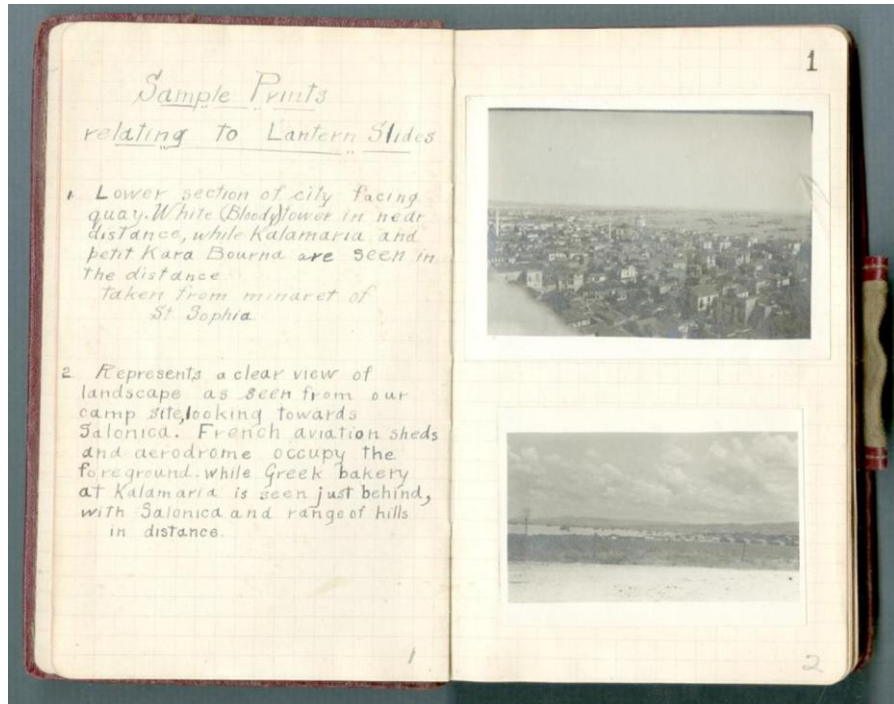 Sample Prints
relating to Lantern Slides
1. Lower section of city facing
quay. White (Bloody) tower in near
distance, while Kalamaria and
petit Kara Bourna are seen in
the distance
taken from minaret of
St. Sophia
2. Represents a clear view of
landscape as seen from our
camp site, looking towards
Salonica. French aviation sheds
and aerodrome occupy the
foreground. while Greek bakery
at Kalamaria is seen just behind,
with Salonica and range of hills
in distance.
1
1
2